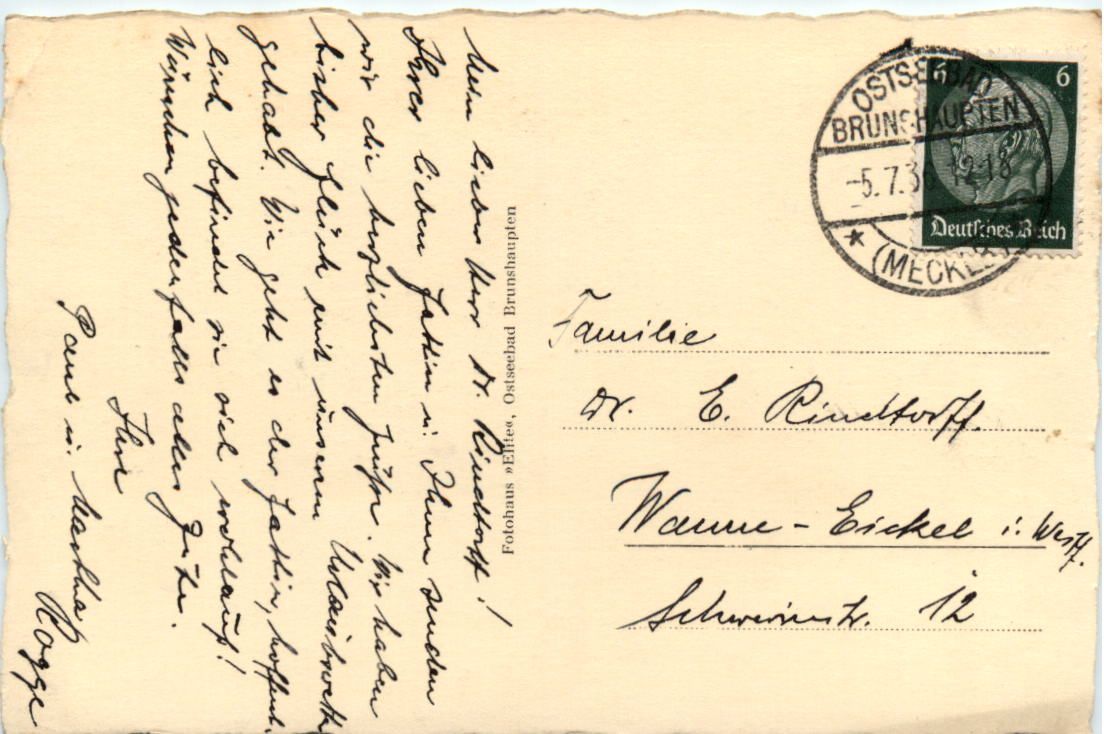 Mein lieber Herr Dr. Rindtorff!
Ihrer lieben Gattin u. Ihnen senden
wir die herzlichsten Grüße. Wir haben
bisher Glück mit unserm Urlaubswetter
gehabt. Wie geht es der Gattin, hoffent-
lich befindet sie sich wohlauf!
Wünschen jedenfalls alles Gute.
Ihre
Paul u. Martha Rogge
Fotohaus »Elite«, Ostseebad Brunshaupten
OSTSEEBAD
BRUNSHAUPTEN
-5.7.36 12-18
(MECKL
6
6
Deutsches Reich
Familie
Dr. E. Rindtorff.
Wanne-Eickel i. Westf.
Schwerinstr. 12